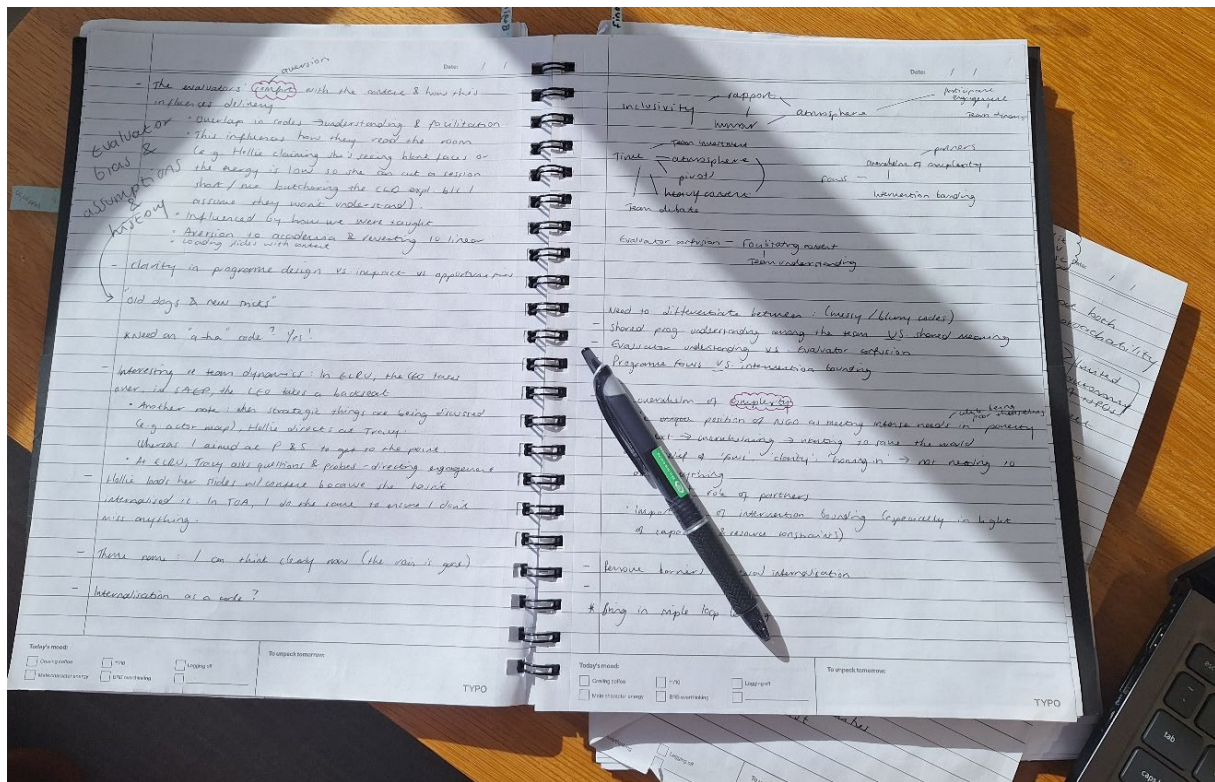 Date: / /
aversion
- The evaluators comfort with the content & how this
influences delivery
• Overlap in codes → understanding & facilitation
• This influences how they read the room
(e.g. Hollie claiming she's seeing blank faces or
the energy is low so she can cut a session
short / me butchering the CLD expl b/c
assume they won't understand).
• Influenced by how we were taught
• Aversion to academia & reverting to linear
• Loading slides with content
Evaluator
bias &
assumptions
&
history
Clarity in programme design vs impact vs
"old dogs & new tricks"
* Need an "aha" code? Yes!
- Interesting re team dynamics: In ELRU, the CEO takes
over, in SAEP, the CEO takes a backseat
• Another note: when strategic things are being discussed
(e.g. actor map), Hollie directs at Tracy.
Whereas I aimed at to get to the point
• At ELRU, Tracy asks questions & probes - directing engagement
- Hollie loads her slides w/ content because she hasn't
internalised it. In TOA, I do the same to ensure I don't
miss anything.
- Theme name: I can think clearly now (the rain is gone)
- Internalisation as a code?
Today's mood:
Craving coffee
11/10
Logging off
Main character energy
BRB overthinking
To unpack tomorrow:
TYPO
Date: / /
inclusivity
rapport
humour
atmosphere
Participant
engagement
Team dynamic
Time
Team investment
atmosphere
pivot
heavy content
Team debate
Focus
partners
Overwhelm of complexity
Intervention bounding
Evaluator confusion - Facilitating content
Team understanding
Need to differentiate between: (messy / blurry codes)
- Shared prog understanding among the team VS shared meaning
- Evaluator understanding VS. Evaluator confusion
- Programme focus VS. intervention bounding
overwhelm of complexity
position of NGO as meeting intense needs in poverty
→ overwhelming → wanting to save the world
of 'focus', 'clarity', 'honing in' → not needing to
role of partners
• of intervention bounding (especially in light
of & resource constraints)
- Remove barriers internalisation
-
* Bring in triple loop
Today's mood:
Craving coffee
11/10
Logging off
Main character energy
BRB overthinking
To unpack tomorrow:
TYPO
back
limited
autonomy
tab
caps